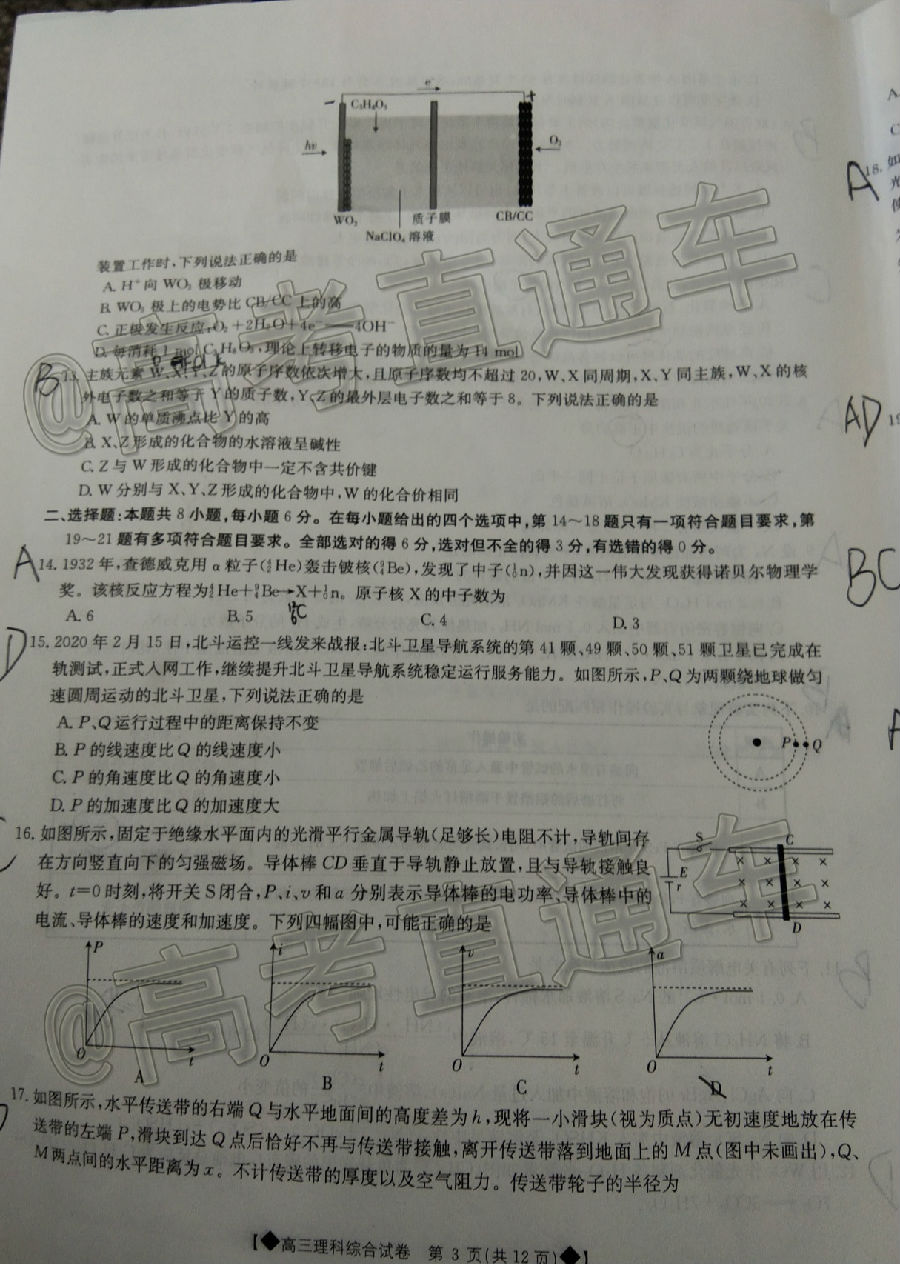 e⁻
− +
C₃H₈O₃
hν O₂
WO₃ 质子膜 CB/CC
NaClO₄ 溶液
装置工作时,下列说法正确的是
A. H⁺向 WO₃ 极移动
B. WO₃ 极上的电势比 CB/CC 上的高
C. 正极发生反应:O₂+2H₂O+4e⁻═4OH⁻
D. 每消耗 1 mol C₃H₈O₃,理论上转移电子的物质的量为 14 mol
B 13. 主族元素 W、X、Y、Z 的原子序数依次增大,且原子序数均不超过 20,W、X 同周期,X、Y 同主族,W、X 的核
外电子数之和等于 Y 的质子数,Y、Z 的最外层电子数之和等于 8。下列说法正确的是
A. W 的单质沸点比 Y 的高
B. X、Z 形成的化合物的水溶液呈碱性
C. Z 与 W 形成的化合物中一定不含共价键
D. W 分别与 X、Y、Z 形成的化合物中,W 的化合价相同
二、选择题:本题共 8 小题,每小题 6 分。在每小题给出的四个选项中,第 14～18 题只有一项符合题目要求,第
19～21 题有多项符合题目要求。全部选对的得 6 分,选对但不全的得 3 分,有选错的得 0 分。
A 14. 1932 年,查德威克用 α 粒子(⁴₂He)轰击铍核(⁹₄Be),发现了中子(¹₀n),并因这一伟大发现获得诺贝尔物理学
奖。该核反应方程为⁴₂He+⁹₄Be→X+¹₀n。原子核 X 的中子数为
A. 6 B. 5 C. 4 D. 3
D 15. 2020 年 2 月 15 日,北斗运控一线发来战报:北斗卫星导航系统的第 41 颗、49 颗、50 颗、51 颗卫星已完成在
轨测试,正式入网工作,继续提升北斗卫星导航系统稳定运行服务能力。如图所示,P、Q 为两颗绕地球做匀
速圆周运动的北斗卫星,下列说法正确的是
A. P、Q 运行过程中的距离保持不变
B. P 的线速度比 Q 的线速度小
C. P 的角速度比 Q 的角速度小
D. P 的加速度比 Q 的加速度大
P Q
16. 如图所示,固定于绝缘水平面内的光滑平行金属导轨(足够长)电阻不计,导轨间存
在方向竖直向下的匀强磁场。导体棒 CD 垂直于导轨静止放置,且与导轨接触良
好。t=0 时刻,将开关 S 闭合,P、i、v 和 a 分别表示导体棒的电功率、导体棒中的
电流、导体棒的速度和加速度。下列四幅图中,可能正确的是
S C
E
r
D
P i v a
O t O t O t O t
A B C D
17. 如图所示,水平传送带的右端 Q 与水平地面间的高度差为 h,现将一小滑块(视为质点)无初速度地放在传
送带的左端 P,滑块到达 Q 点后恰好不再与传送带接触,离开传送带落到地面上的 M 点(图中未画出),Q、
M 两点间的水平距离为 x。不计传送带的厚度以及空气阻力。传送带轮子的半径为
【◆高三理科综合试卷 第 3 页(共 12 页)◆】
A 18. 如
AD
BC
@高考直通车
@高考直通车